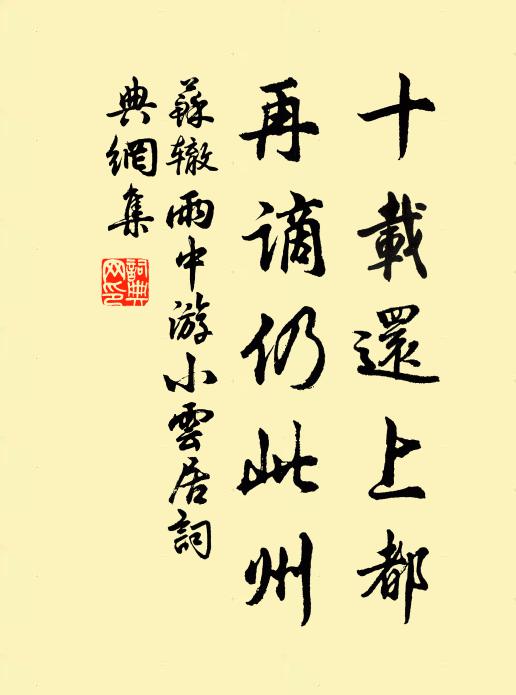 十載還上都
再謫仍此州
蘇辙雨中游小雲居詞
典網集
詞典
网印